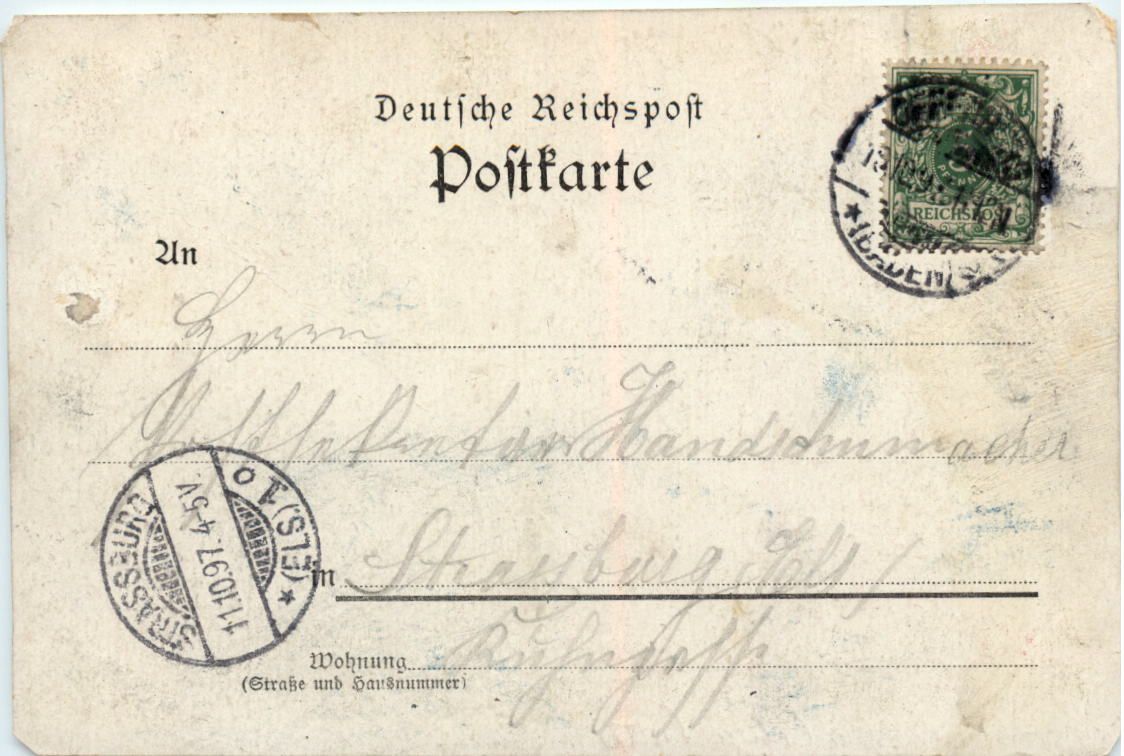 Deutsche Reichspost
Postkarte
REICHSPOST
(BADEN)
An
Herrn
Handschumacher
STRASSBURG
11.10.97. 4-5V.
(ELS) 1 o
in Strassburg Els/
Wohnung
(Straße und Hausnummer)